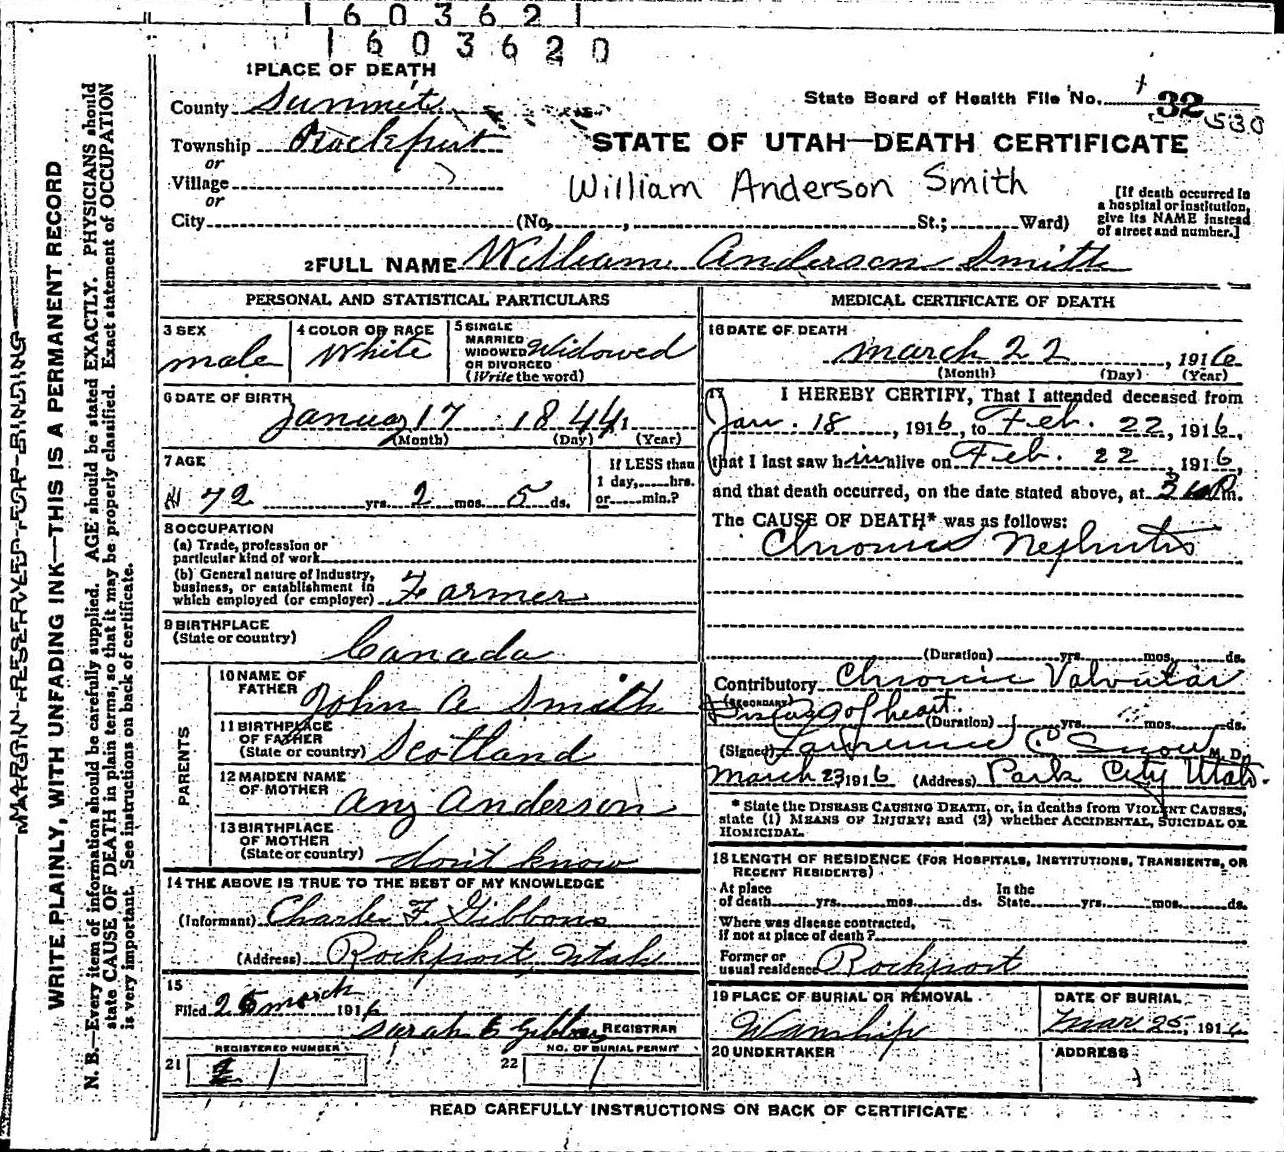 1603621
1603620
1 PLACE OF DEATH
County Summit
State Board of Health File No. 32
530
Township Rockport
STATE OF UTAH—DEATH CERTIFICATE
or
Village
William Anderson Smith
or
City (No. , St.; Ward)
[If death occurred in
a hospital or institution,
give its NAME instead
of street and number.]
2 FULL NAME William Anderson Smith
PERSONAL AND STATISTICAL PARTICULARS
3 SEX
male
4 COLOR OR RACE
White
5 SINGLE
MARRIED
WIDOWED
OR DIVORCED
(Write the word)
Widowed
6 DATE OF BIRTH
January 17 1844
(Month) (Day) (Year)
7 AGE
72 yrs. 2 mos. 5 ds.
If LESS than
1 day, hrs.
or min.?
8 OCCUPATION
(a) Trade, profession or
particular kind of work
(b) General nature of industry,
business, or establishment in
which employed (or employer) Farmer
9 BIRTHPLACE
(State or country)
Canada
PARENTS
10 NAME OF
FATHER John A Smith
11 BIRTHPLACE
OF FATHER
(State or country) Scotland
12 MAIDEN NAME
OF MOTHER
Any Anderson
13 BIRTHPLACE
OF MOTHER
(State or country) don't know
14 THE ABOVE IS TRUE TO THE BEST OF MY KNOWLEDGE
(Informant) Charles F. Gibbons
(Address) Rockport, Utah
15
Filed 25 march 1916
Sarah E Gibbons REGISTRAR
REGISTERED NUMBER
21
NO. OF BURIAL PERMIT
22
MEDICAL CERTIFICATE OF DEATH
16 DATE OF DEATH
March 22, 1916
(Month) (Day) (Year)
17 I HEREBY CERTIFY, That I attended deceased from
Jan. 18, 1916, to Feb. 22, 1916,
that I last saw him alive on Feb. 22, 1916,
and that death occurred, on the date stated above, at 3 m.
The CAUSE OF DEATH* was as follows:
Chronic Nephritis
(Duration) yrs. mos. ds.
Contributory Chronic Valvular
(SECONDARY)
Disease of heart.
(Duration) yrs. mos. ds.
(Signed) Lawrence C Snow M. D.
March 23, 1916 (Address) Park City Utah.
* State the DISEASE CAUSING DEATH, or, in deaths from VIOLENT CAUSES,
state (1) MEANS OF INJURY; and (2) whether ACCIDENTAL, SUICIDAL OR
HOMICIDAL.
18 LENGTH OF RESIDENCE (FOR HOSPITALS, INSTITUTIONS, TRANSIENTS, OR
RECENT RESIDENTS)
At place
of death yrs. mos. ds.
In the
State yrs. mos. ds.
Where was disease contracted,
if not at place of death?
Former or
usual residence Rockport
19 PLACE OF BURIAL OR REMOVAL
Wanship
DATE OF BURIAL
Mar 25, 1916
20 UNDERTAKER
ADDRESS
READ CAREFULLY INSTRUCTIONS ON BACK OF CERTIFICATE
MARGIN RESERVED FOR BINDING
WRITE PLAINLY, WITH UNFADING INK—THIS IS A PERMANENT RECORD
N. B.—Every item of information should be carefully supplied. AGE should be stated EXACTLY. PHYSICIANS should
state CAUSE OF DEATH in plain terms, so that it may be properly classified. Exact statement of OCCUPATION
is very important. See instructions on back of certificate.